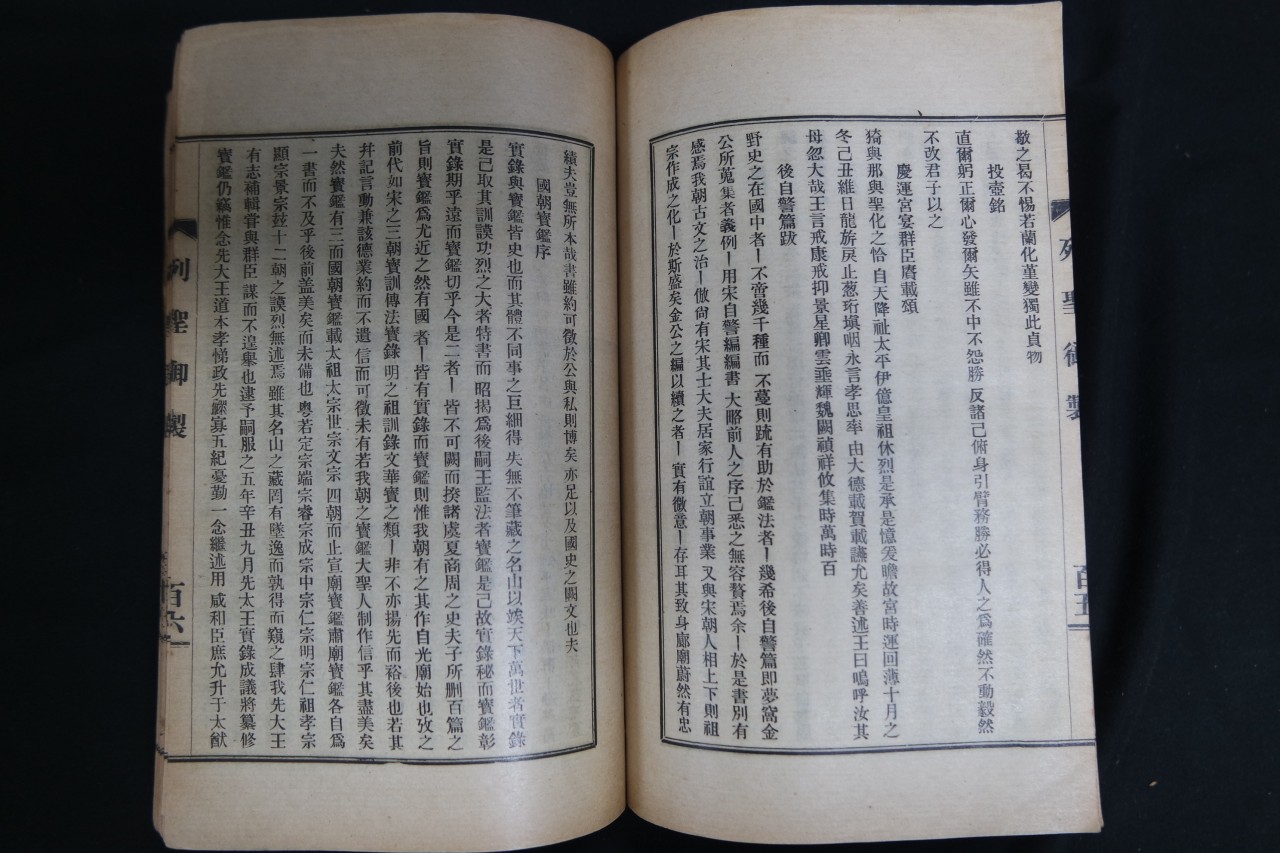 敬之曷不惕若蘭化菫變獨此貞物
投壺銘
直爾躬正爾心發爾矢雖不中不怨勝反諸己俯身引臂務勝必得人之爲確然不動毅然
不改君子以之
慶運宮宴群臣賡載頌
猗與那與聖化之恰自天降祉太平伊億皇祖休烈是承是憶爰瞻故宮時運回薄十月之
冬己丑維日龍旂戾止葱珩塡咽永言孝思率由大德載賀載讌尤矣善述王曰嗚呼汝其
母忽大哉王言戒康戒抑景星卿雲垂輝魏闕禎祥攸集時萬時百
後自警篇跋
野史之在國中者ㅣ不啻幾千種而不蔓則䟽有助於鑑法者ㅣ幾希後自警篇即夢窩金
公所蒐集者義例ㅣ用宋自警編編書大略前人之序己悉之無容贅焉余ㅣ於是書別有
感焉我朝古文之治ㅣ倣尙有宋其士大夫居家行誼立朝事業又與宋朝人相上下則祖
宗作成之化ㅣ於斯盛矣金公之編以續之者ㅣ實有微意ㅣ存耳其致身廊廟蔚然有忠
列聖御製
百五
績夫豈無所本哉書雖約可徵於公與私則博矣亦足以及國史之闕文也夫
國朝寶鑑序
實錄與寶鑑皆史也而其體不同事之巨細得失無不筆藏之名山以竢天下萬世者實錄
是己取其訓謨功烈之大者特書而昭揭爲後嗣王監法者寶鑑是己故實錄秘而寶鑑彰
實錄期乎遠而寶鑑切乎今是二者ㅣ皆不可闕而揆諸虞夏商周之史夫子所删百篇之
旨則寶鑑爲尤近之然有國者ㅣ皆有實錄而寶鑑則惟我朝有之其作自光廟始也攷之
前代如宋之三朝寶訓傳法寶錄明之祖訓錄文華寶之類ㅣ非不亦揚先而裕後也若其
幷記言動兼該德業約而不遺信而可徵未有若我朝之寶鑑大聖人制作信乎其盡美矣
夫然寶鑑有三而國朝寶鑑載太祖太宗世宗文宗四朝而止宣廟寶鑑肅廟寶鑑各自爲
一書而不及乎後前盖美矣而未備也粤若定宗端宗睿宗成宗中宗仁宗明宗仁祖孝宗
顯宗景宗玆十二朝之謨烈無述焉雖其名山之藏罔有墜逸而孰得而窺之肆我先大王
有志補輯甞與群臣謀而不遑擧也逮予嗣服之五年辛丑九月先大王實錄成議將纂修
寶鑑仍竊惟念先大王道本孝悌政先鰥寡五紀憂勤一念繼述用咸和臣庶允升于太猷
列聖御製
百六